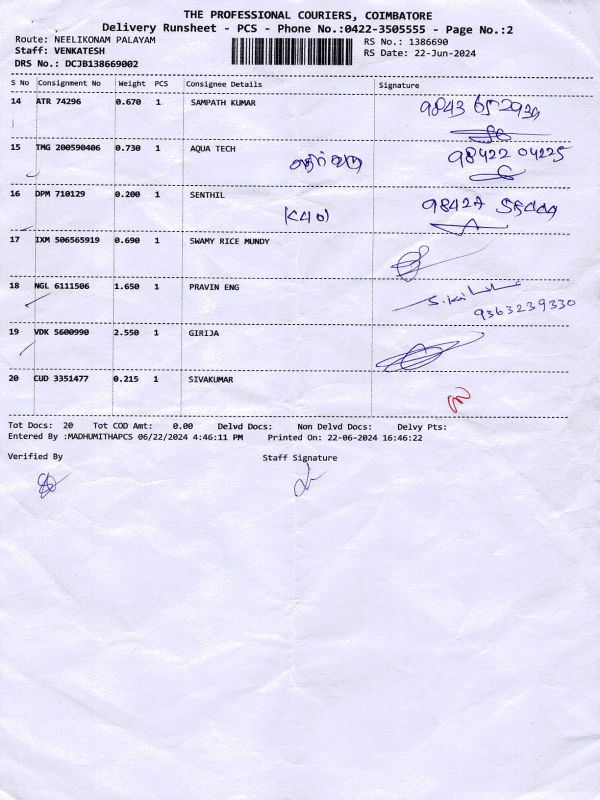 THE PROFESSIONAL COURIERS, COIMBATORE
Delivery Runsheet - PCS - Phone No.:0422-3505555 - Page No.:2
Route: NEELIKONAM PALAYAM RS No.: 1386690
Staff: VENKATESH RS Date: 22-Jun-2024
DRS No.: DCJB138669002
S No Consignment No Weight PCS Consignee Details Signature
14 ATR 74296 0.670 1 SAMPATH KUMAR
15 TMG 200590406 0.730 1 AQUA TECH 98422 04225
16 DPM 710129 0.200 1 SENTHIL
17 IXM 506565919 0.690 1 SWAMY RICE MUNDY
18 NGL 6111506 1.650 1 PRAVIN ENG
9363239330
19 VDK 5600990 2.550 1 GIRIJA
20 CUD 3351477 0.215 1 SIVAKUMAR
Tot Docs: 20 Tot COD Amt: 0.00 Delvd Docs: Non Delvd Docs: Delvy Pts:
Entered By :MADHUMITHAPCS 06/22/2024 4:46:11 PM Printed On: 22-06-2024 16:46:22
Verified By Staff Signature